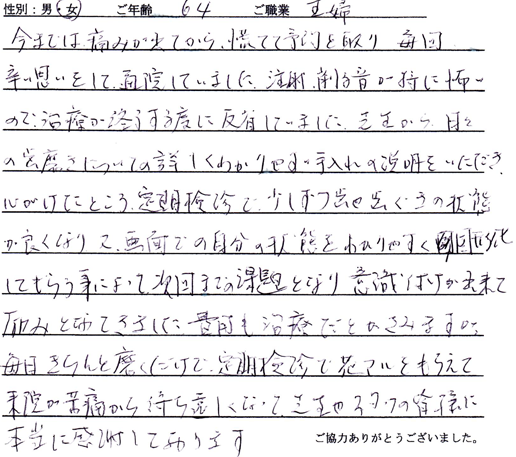 性別：男・女 ご年齢 64 ご職業 主婦
今までは痛みが出てから、慌てて予約を取り 毎回
辛い思いをして、通院していました。注射、削る音が特に怖い
ので、治療が終了する度に反省していました。先生から、日々
の歯磨きについての詳しくわかりやすい手入れの説明をいただき、
心がけたところ、定期検診で、少しずつ歯や歯ぐきの状態
が良くなりて、画面での自分の状態をわかりやすく
してもらう事によって次回までの課題となり 意識づけが出来て
励みとなってきました。費用も治療だとかさみますが、
毎日きちんと磨くだけで、定期検診で花マルをもらえて
来院が苦痛から待ち遠しくなって、先生やスタッフの皆様に
本当に感謝しております
ご協力ありがとうございました。